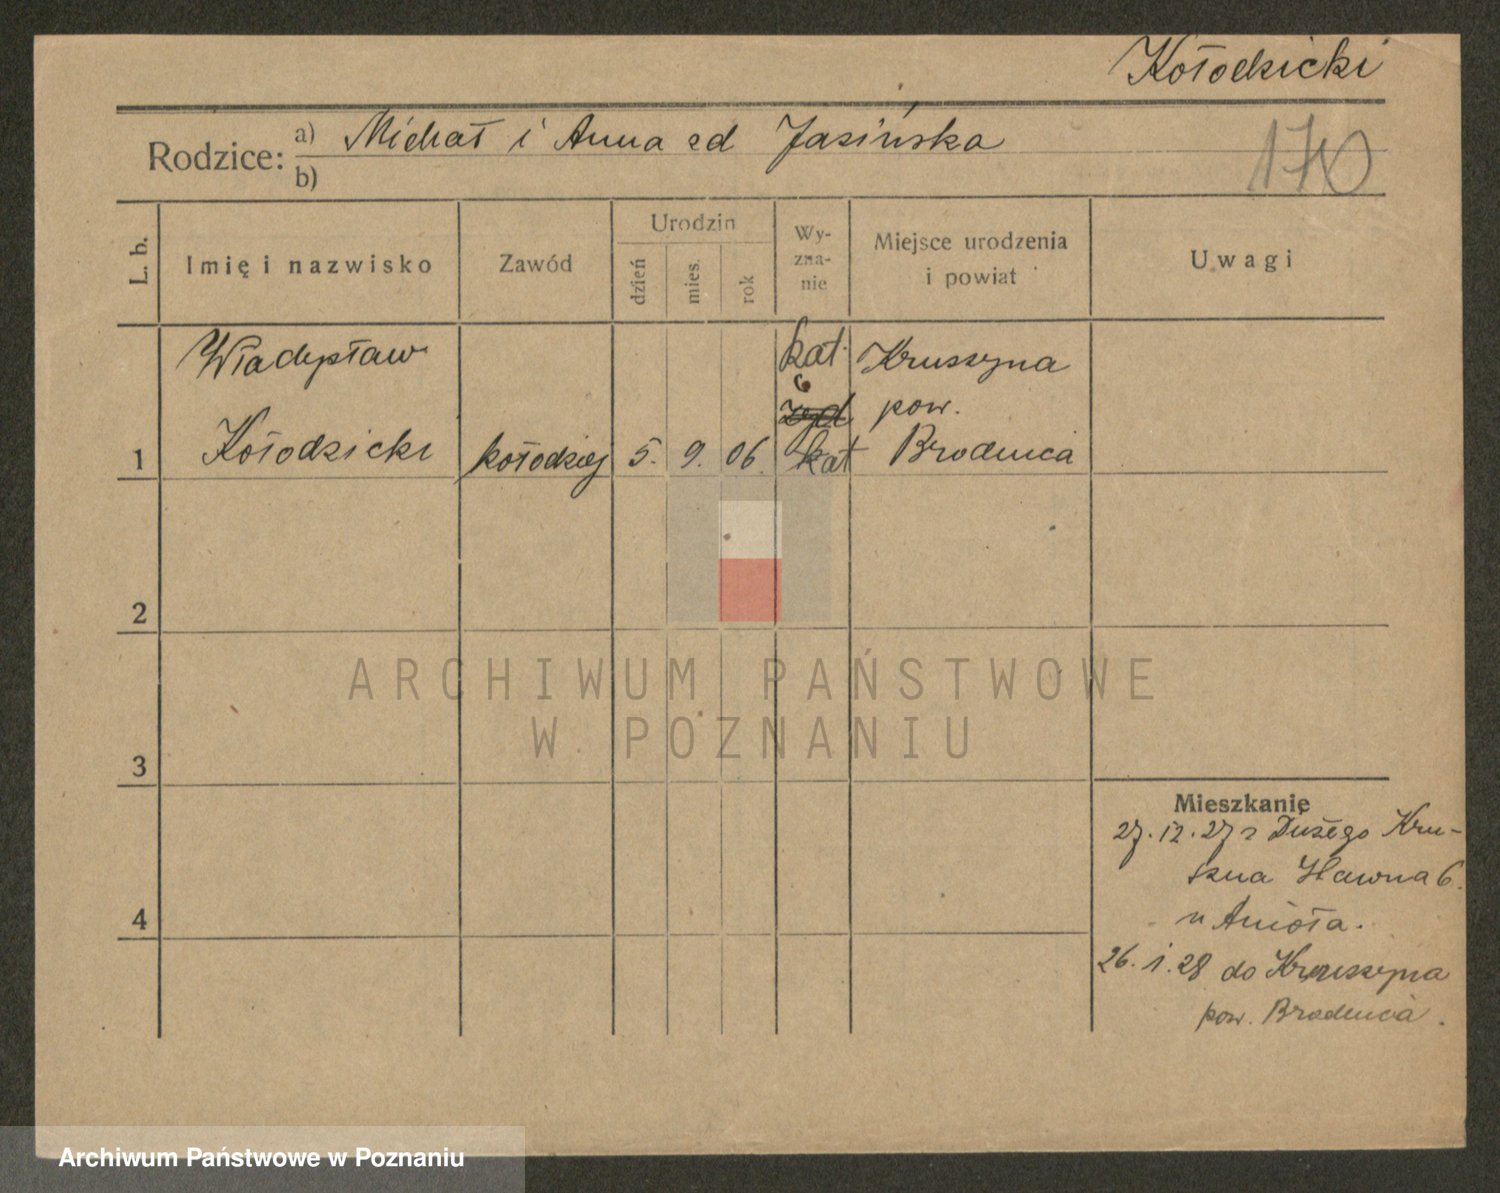 Kołodzicki
Rodzice: a) Michał i Anna zd Jasińska
b)
170
L. b.
Imię i nazwisko
Zawód
Urodzin
dzień
mies.
rok
Wy-
zna-
nie
Miejsce urodzenia
i powiat
Uwagi
Władysław
Kołodzicki
1
kołodziej
5.
9.
06.
kat.
kat
Kruszyna
pow.
Brodnica
2
3
4
ARCHIWUM PAŃSTWOWE
W POZNANIU
Mieszkanie
27.12.27 z Dużego Kru-
szna Sławna 6.
u Anioła.
26.1.28 do Kruszyna
pow. Brodnica.
Archiwum Państwowe w Poznaniu